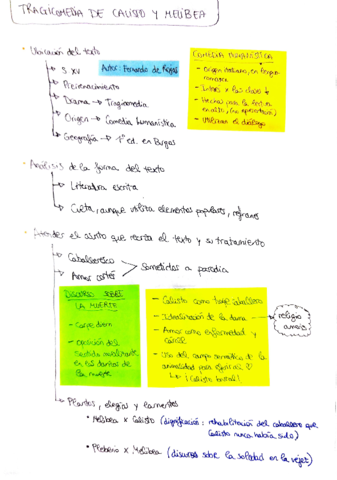 TRAGICOMEDIA DE CALISTO Y MELIBEA
Ubicación del texto
S XV
Autor: Fernando de Rojas
Prerrenacimiento
Drama → Tragicomedia
Origen → Comedia humanística
Geografía → 1ª ed. en Burgos
COMEDIA HUMANÍSTICA
- Origen italiano, en lengua
- Interés x las clases ↓
- Hechas para la lectura
en alto, (no representación)
- Utilizan el diálogo
Análisis de la forma del texto
Literatura escrita
Culta, aunque utiliza elementos populares, refranes
Atender el asunto que recrea el texto y su tratamiento
Caballeresco
Amor cortés
Sometidos a parodia
DISCURSO SOBRE
LA MUERTE
- Carpe diem
- oposición del
sentido
en las danzas de
la muerte
- Calisto como torpe caballero
- Idealización de la dama
religio
amoris
- Amor como enfermedad y
cárcel
- Uso del campo semántico de la
animalidad para
↳ ¡Calisto
Plantos, elegías y lamentos
• Melibea x Calisto (dignificación: rehabilitación del caballero que
Calisto nunca había sido)
• Pleberio x Melibea (discurso sobre la soledad en la vejez)